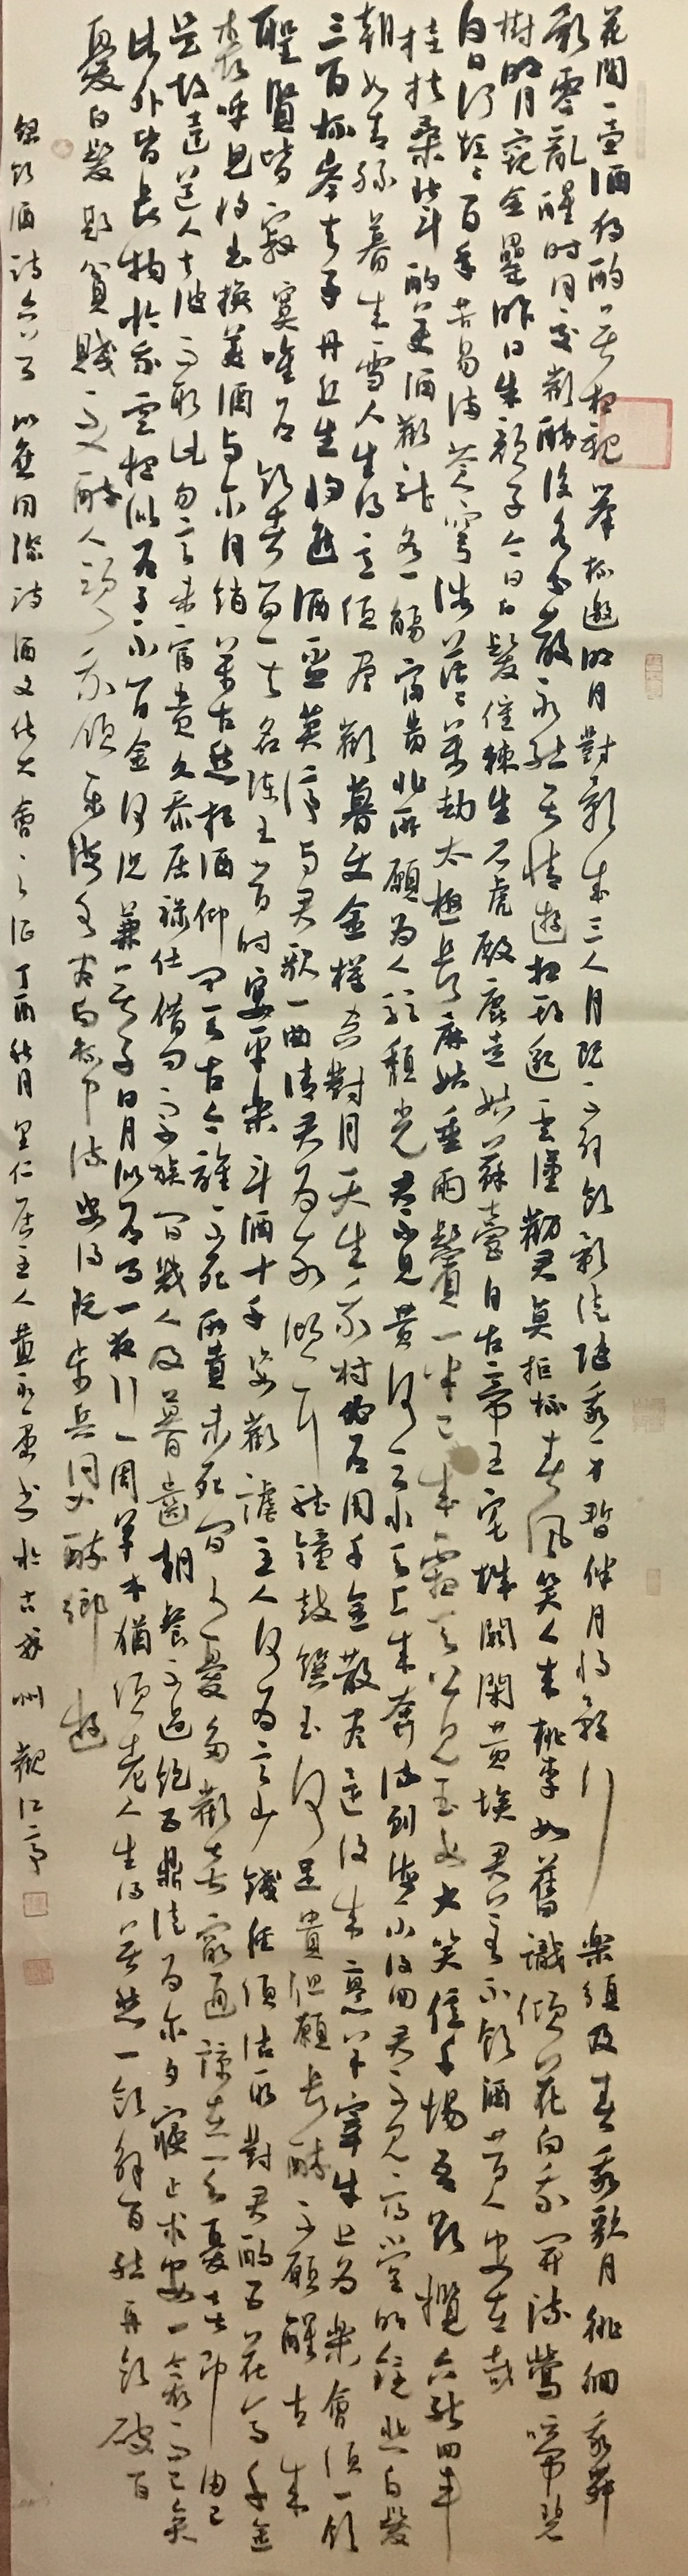 花間一壺酒獨酌無相親舉杯邀明月對影成三人月既不解飲影徒隨我身暫伴月將影行樂須及春我歌月徘徊我舞
影零亂醒時同交歡醉後各分散永結無情遊相期邈雲漢勸君莫拒杯春風笑人來桃李如舊識傾花向我開流鶯啼碧
樹明月窺金罍昨日朱顏子今日白髮催棘生石虎殿鹿走姑蘇臺自古帝王宅城闕閉黃埃君若不飲酒昔人安在哉
白日何短短百年苦易滿蒼穹浩茫茫萬劫太極長麻姑垂兩鬢一半已成霜天公見玉女大笑億千場吾欲攬六龍回車
挂扶桑北斗酌美酒勸龍各一觴富貴非所願為人駐頹光君不見黃河之水天上來奔流到海不復回君不見高堂明鏡悲白髮
朝如青絲暮成雪人生得意須盡歡莫使金樽空對月天生我材必有用千金散盡還復來烹羊宰牛且為樂會須一飲
三百杯岑夫子丹丘生將進酒盃莫停與君歌一曲請君為我傾耳聽鐘鼓饌玉何足貴但願長醉不願醒古來
聖賢皆寂寞唯有飲者留其名陳王昔時宴平樂斗酒十千恣歡謔主人何為言少錢徑須沽取對君酌五花馬千金
裘呼兒將出換美酒與爾同銷萬古愁把酒仰問天古今誰不死所貴未死間少憂多歡喜窮通諒在天憂喜即由己
是故達道人去彼而取此勿言未富貴久忝居祿仕借問宗族間幾人及暮齒朝餐不過飽五鼎徒為爾夕寢止求安一衾而已矣
此外皆長物於我雲相似有子不留金何況兼無子日月似有事一夜行一周草木猶須老人生得無愁一飲解百結再飲破百
憂白髮欺貧賤不入醉人頭我願東海水盡向杯中流安得阮步兵同入醉鄉遊
錄飲酒詩六首以應国際詩酒文化大會之征丁酉秋月里仁居主人黃墨書於古州觀江亭